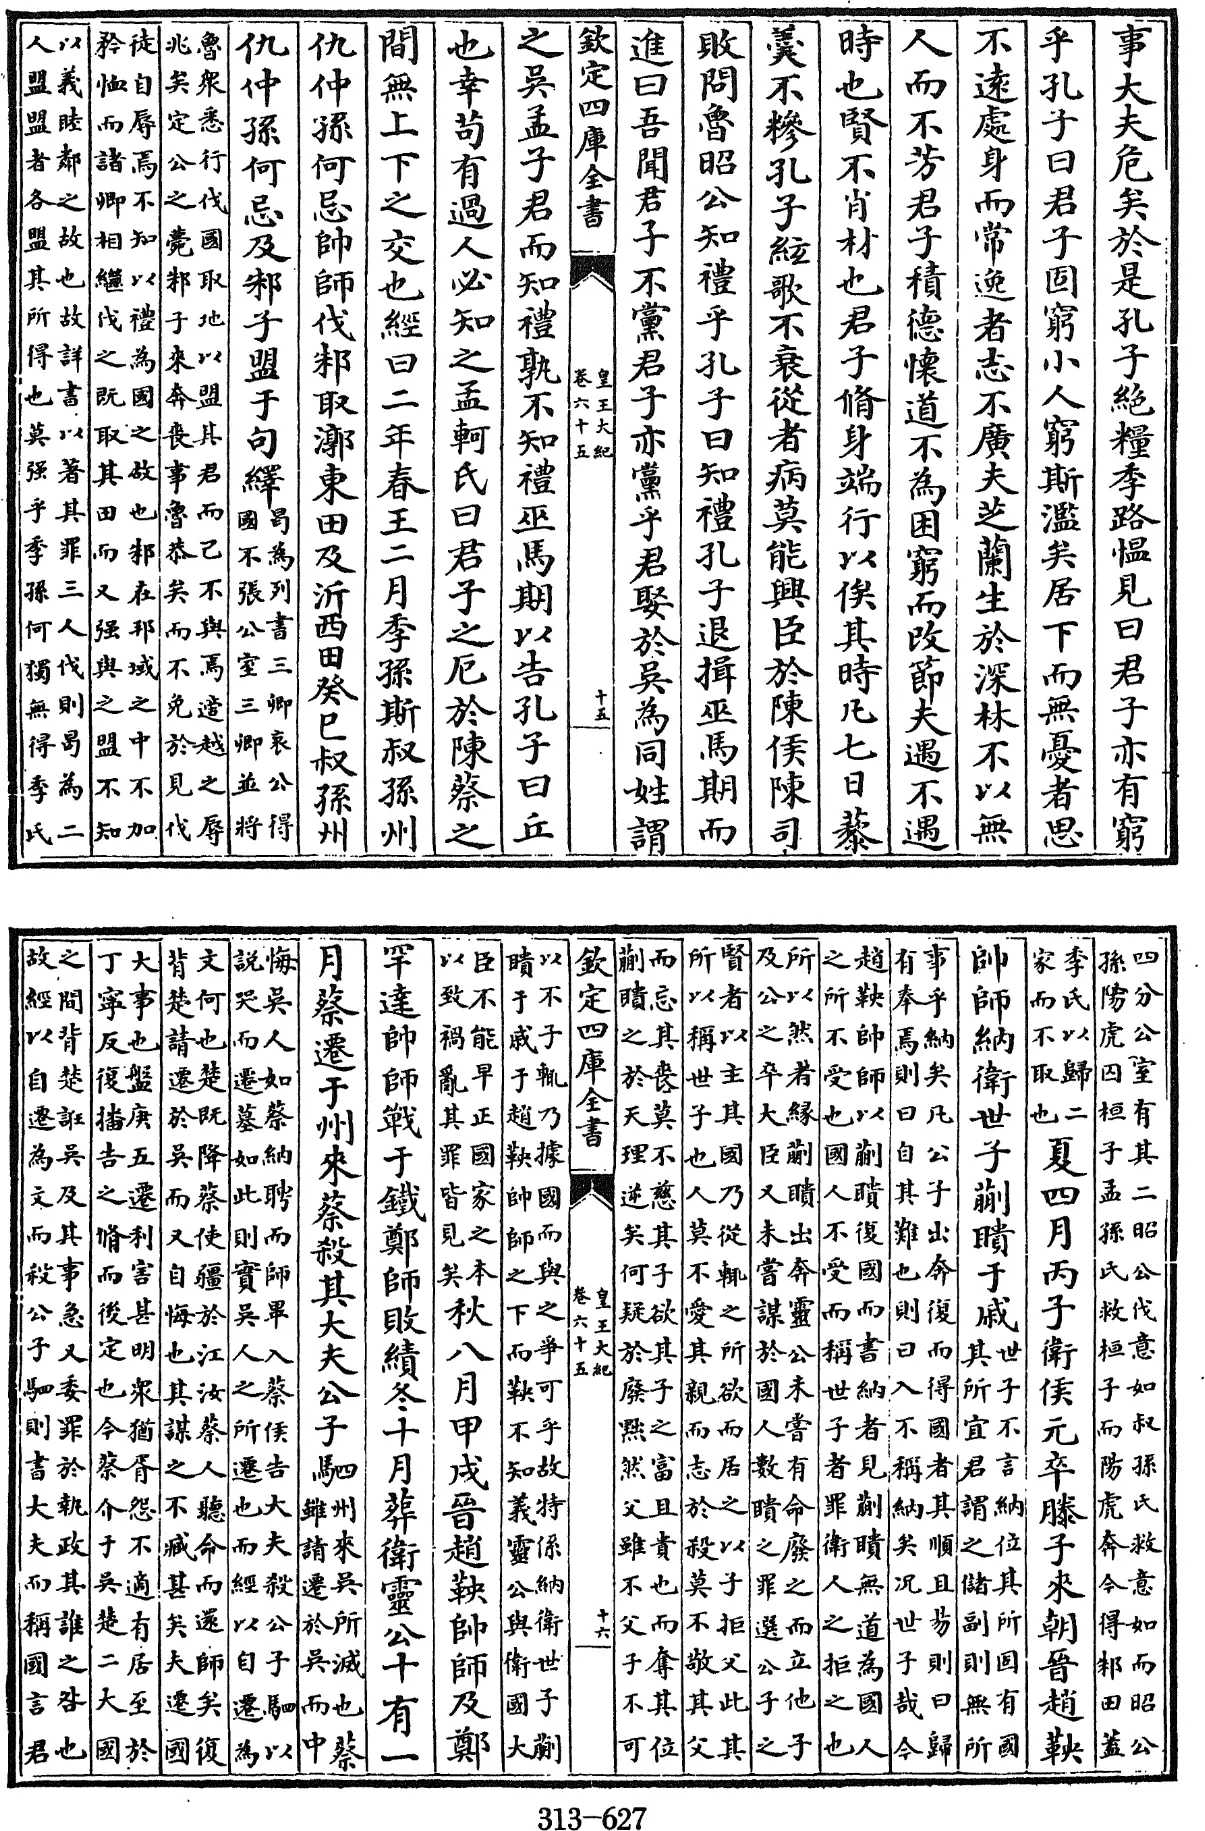 事大夫危矣於是孔子絶糧季路愠見曰君子亦有窮
乎孔子曰君子固窮小人窮斯濫矣居下而無憂者思
不逺處身而常逸者志不廣夫芝蘭生於深林不以無
人而不芳君子積徳懐道不為困窮而改節夫遇不遇
時也賢不肖材也君子脩身端行以俟其時凡七日藜
羮不糝孔子絃歌不衰從者病莫能興臣於陳侯陳司
敗問魯昭公知禮乎孔子曰知禮孔子退揖巫馬期而
進曰吾聞君子不黨君子亦黨乎君娶於吳為同姓謂
欽定四庫全書
皇王大紀
卷六十五
十五
之吳孟子君而知禮孰不知禮巫馬期以告孔子曰丘
也幸苟有過人必知之孟軻氏曰君子之厄於陳蔡之
間無上下之交也經曰二年春王二月季孫斯叔孫州
仇仲孫何忌帥師伐邾取漷東田及沂西田癸巳叔孫州
仇仲孫何忌及邾子盟于句繹
曷為列書三卿哀公得
國不張公室三卿並將
魯衆悉行伐國取地以盟其君而己不與焉適越之辱
兆矣定公之薨邾子來奔喪事魯恭矣而不免於見伐
徒自辱焉不知以禮為國之故也邾在邦域之中不加
矜恤而諸卿相繼伐之既取其田而又强與之盟不知
以義睦鄰之故也故詳書以著其罪三人伐則曷為二
人盟盟者各盟其所得也莫强乎季孫何獨無得季氏
四分公室有其二昭公伐意如叔孫氏救意如而昭公
孫陽虎囚桓子孟孫氏救桓子而陽虎奔今得邾田蓋
季氏以歸二
家而不取也
夏四月丙子衛侯元卒滕子來朝晉趙鞅
帥師納衛世子蒯聵于戚
世子不言納位其所固有國
其所宜君謂之儲副則無所
事乎納矣凡公子出奔復而得國者其順且易則曰歸
有奉焉則曰自其難也則曰入不稱納矣况世子哉今
趙鞅帥師以蒯聵復國而書納者見蒯聵無道為國人
之所不受也國人不受而稱世子者罪衛人之拒之也
所以然者緣蒯聵出奔靈公未嘗有命廢之而立他子
及公之卒大臣又未嘗謀於國人數聵之罪選公子之
賢者以主其國乃從輒之所欲而居之以子拒父此其
所以稱世子也人莫不愛其親而志於殺莫不敬其父
而忘其喪莫不慈其子欲其子之富且貴也而奪其位
蒯聵之於天理逆矣何疑於廢黜然父雖不父子不可
欽定四庫全書
皇王大紀
卷六十五
十六
以不子輒乃據國而與之爭可乎故特係納衛世子蒯
聵于戚于趙鞅帥師之下而鞅不知義靈公與衛國大
臣不能早正國家之本
以致禍亂其罪皆見矣
秋八月甲戌晉趙鞅帥師及鄭
罕達帥師戰于鐵鄭師敗績冬十月葬衛靈公十有一
月蔡遷于州來蔡殺其大夫公子駟
州來吳所滅也蔡
雖請遷於吳而中
悔吳人如蔡納聘而師畢入蔡侯告大夫殺公子駟以
說哭而遷墓如此則實吳人之所遷也而經以自遷為
文何也楚既降蔡使疆於江汝蔡人聽命而還師矣復
背楚請遷於吳而又自悔也其謀之不臧甚矣夫遷國
大事也盤庚五遷利害甚明衆猶胥怨不適有居至於
丁寧反復播告之脩而後定也今蔡介于吳楚二大國
之間背楚誑吳及其事急又委罪於執政其誰之咎也
故經以自遷為文而殺公子駟則書大夫而稱國言君
313-627